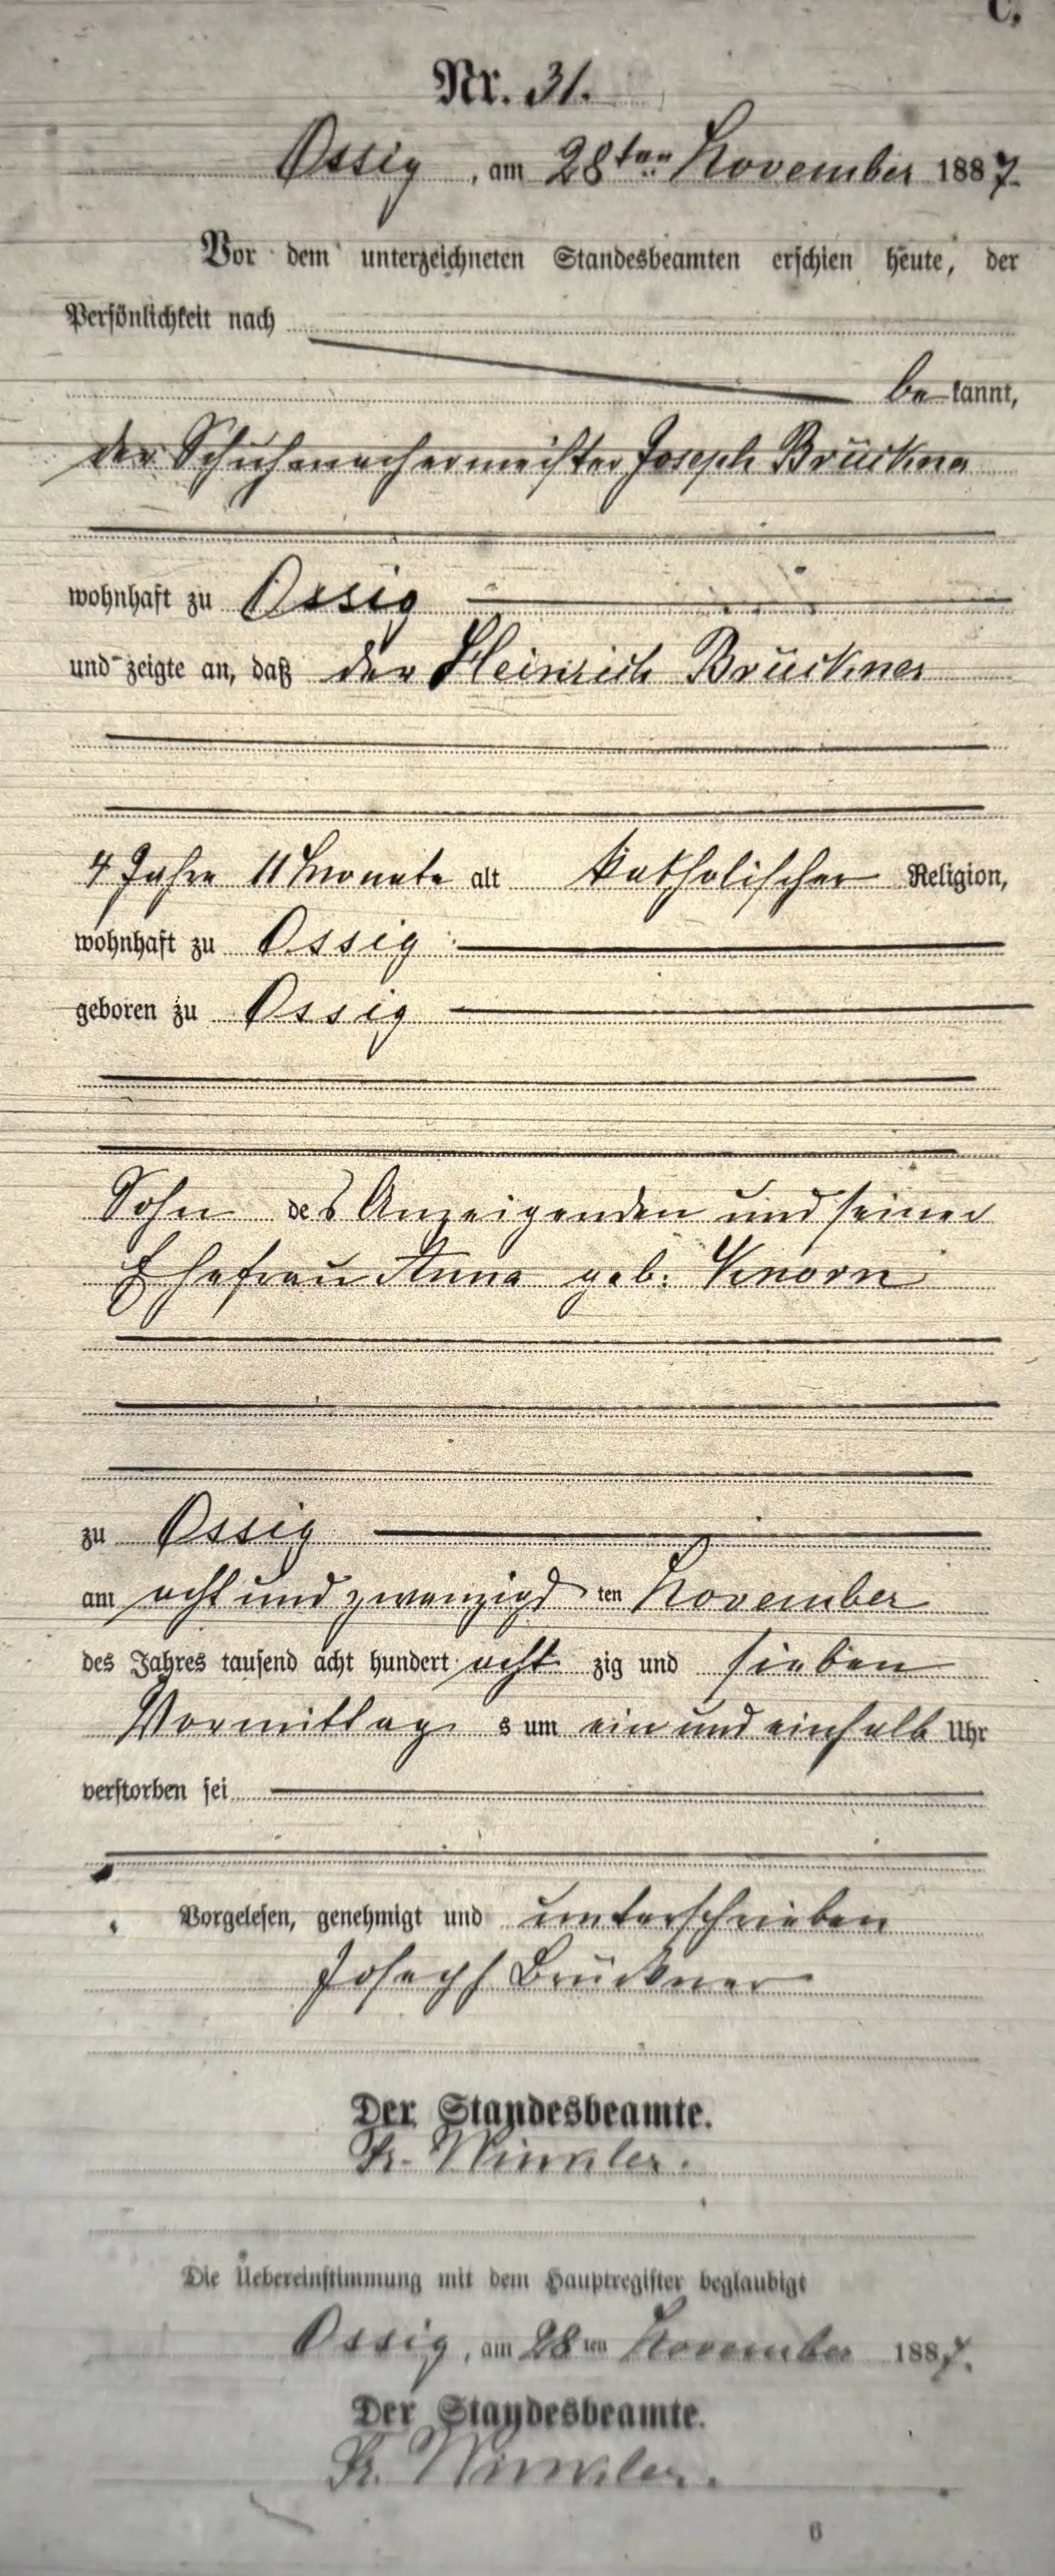 C.
Nr. 31.
Ossig, am 28ten November 1887.
Vor dem unterzeichneten Standesbeamten erschien heute, der
Persönlichkeit nach
be kannt,
der Schuhmachermeister Joseph Brückne
wohnhaft zu Ossig
und zeigte an, daß der Heinrich Brückner
4 Jahre 11 Monate alt katholischer Religion,
wohnhaft zu Ossig
geboren zu Ossig
Sohn des Anzeigenden und seiner
Ehefrau Anna geb. Knorn
zu Ossig
am acht und zwanzigs ten November
des Jahres tausend acht hundert acht zig und sieben
Vormittag s um ein und einhalb Uhr
verstorben sei
Vorgelesen, genehmigt und unterschrieben
Joseph Brückner
Der Standesbeamte.
Winkler.
Die Uebereinstimmung mit dem Hauptregister beglaubigt
Ossig, am 28 ten November 1887.
Der Standesbeamte.
Winkler.